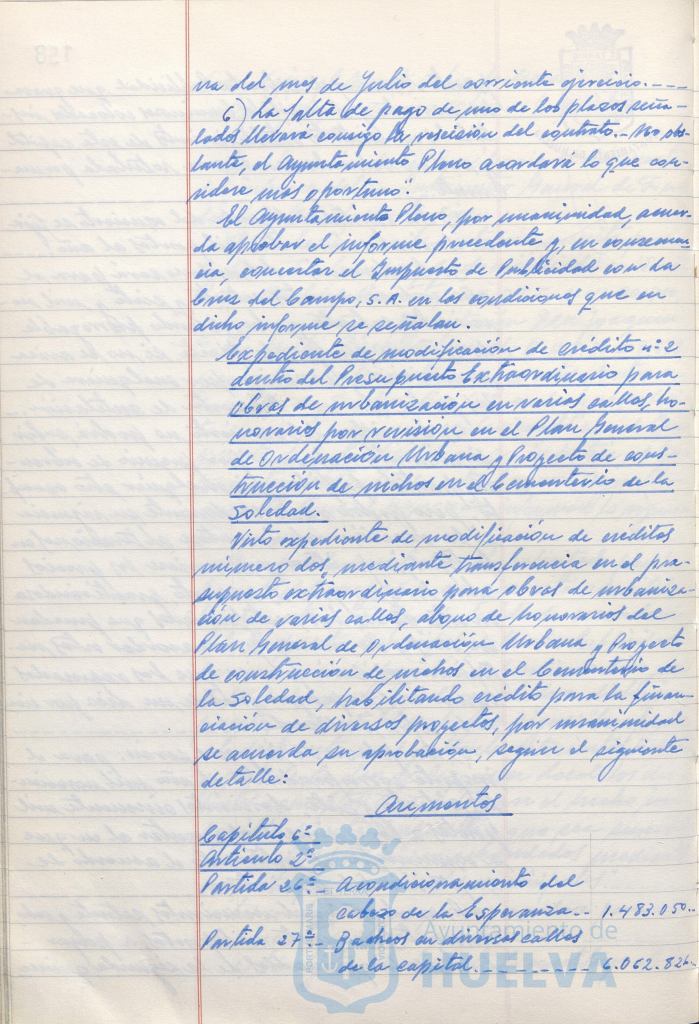 va del mes de Julio del corriente ejercicio.----
6) La falta de pago de uno de los plazos seña-
lados llevará consigo la rescición del contrato.- No obs-
tante, el Ayuntamiento Pleno acordará lo que con-
sidere más oportuno".
El Ayuntamiento Pleno, por unanimidad, acuer-
da aprobar el informe precedente y, en consecuen-
cia, concertar el Impuesto de Publicidad con La
Cruz del Campo, S.A. en las condiciones que en
dicho informe se señalan.
Expediente de modificación de crédito nº 2
dentro del Presupuesto Extraordinario para
obras de urbanización en varias calles, ho-
norarios por revisión en el Plan General
de Ordenación Urbana y Proyecto de cons-
trucción de nichos en el Cementerio de la
Soledad.
Visto expediente de modificación de créditos
número dos, mediante transferencia en el pre-
supuesto extraordinario para obras de urbaniza-
ción de varias calles, abono de honorarios del
Plan General de Ordenación Urbana y Proyecto
de construcción de nichos en el Cementerio de
la Soledad, habilitando crédito para la finan-
ciación de diversos proyectos, por unanimidad
se acuerda su aprobación, según el siguiente
detalle:
Aumentos
Capítulo 6º
Artículo 2º
Partida 26ª.- Acondicionamiento del
cabezo de la Esperanza.-- 1.483.050.-
Partida 27ª.- Bacheos en diversas calles
de la capital.---------- 6.062.826.-
Ayuntamiento de
HUELVA